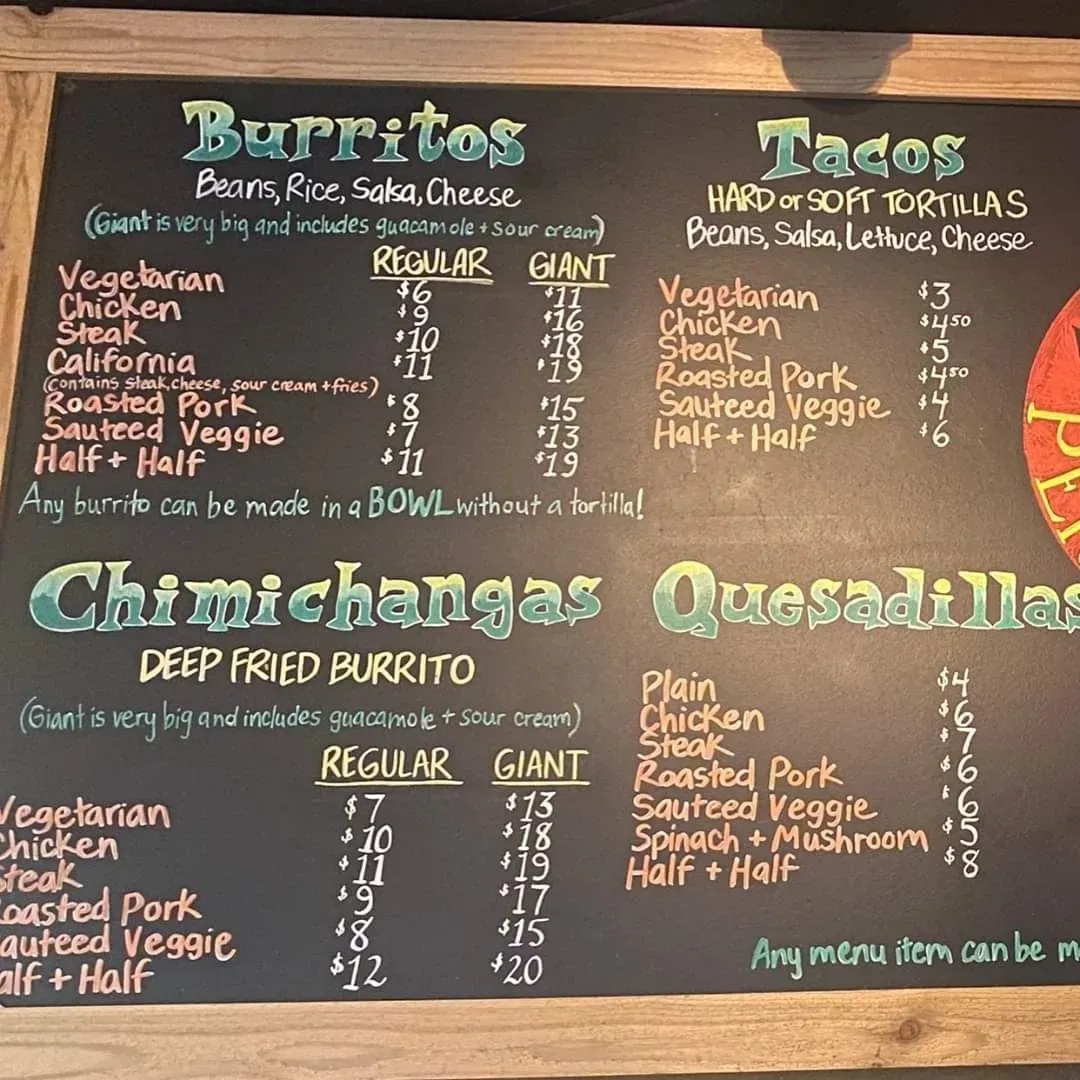 Burritos
Beans, Rice, Salsa, Cheese
(Giant is very big and includes guacamole + sour cream)
REGULAR GIANT
Vegetarian $6 $11
Chicken $9 $16
Steak $10 $18
California $11 $19
(contains steak, cheese, sour cream + fries)
Roasted Pork $8 $15
Sauteed Veggie $7 $13
Half + Half $11 $19
Any burrito can be made in a BOWL without a tortilla!
Tacos
HARD or SOFT TORTILLAS
Beans, Salsa, Lettuce, Cheese
Vegetarian $3
Chicken $4.50
Steak $5
Roasted Pork $4.50
Sauteed Veggie $4
Half + Half $6
Chimichangas
DEEP FRIED BURRITO
(Giant is very big and includes guacamole + sour cream)
REGULAR GIANT
Vegetarian $7 $13
Chicken $10 $18
Steak $11 $19
oasted Pork $9 $17
auteed Veggie $8 $15
alf + Half $12 $20
Quesadillas
Plain $4
Chicken $6
Steak $7
Roasted Pork $6
Sauteed Veggie $6
Spinach + Mushroom $5
Half + Half $8
Any menu item can be m